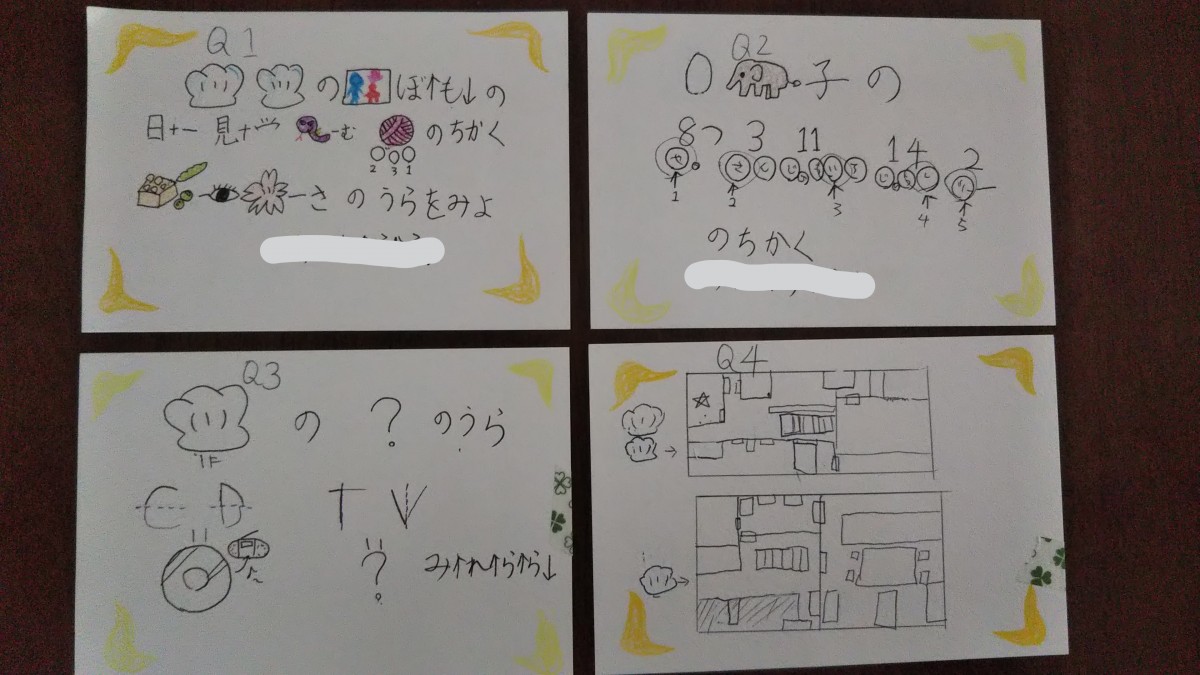 Q1
の ぼ↑も↓の
日+一 見+ ーむ のちかく
2 3 1
ー ーさ のうらをみよ
Q2
0 子の
8つ 3 11 14 2
せ さ し
1 2 3 4 5
のちかく
Q3
の ? のうら
1F
C D T V
?
み↑れ↑ら↑ら↓
Q4